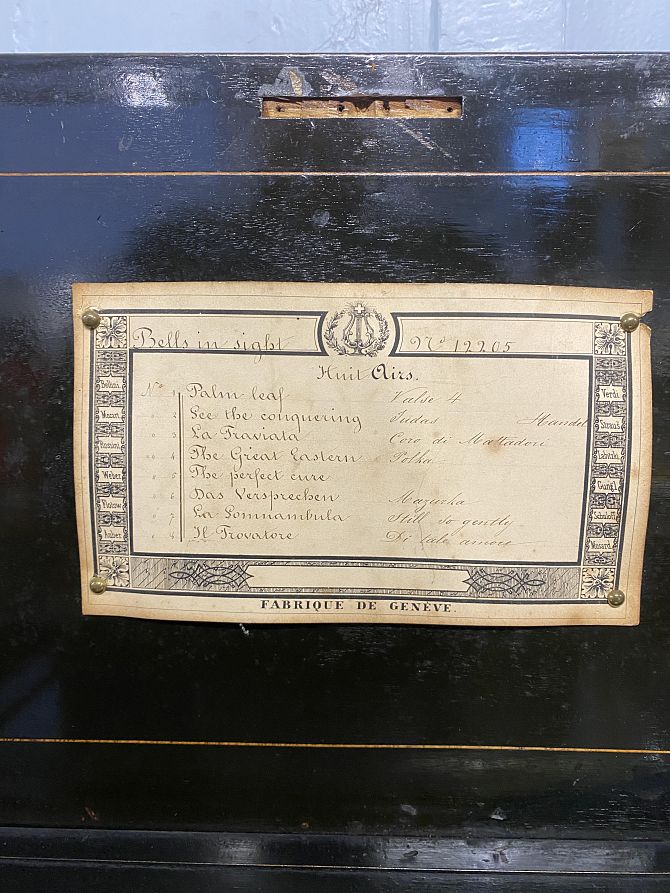 Bells in sight No 12205
Huit Airs.
No 1 Palm leaf Valse 4
" 2 See the conquering Judas Handel
" 3 La Traviata Coro di Mattadori
" 4 The Great Eastern Polka
" 5 The perfect cure
" 6 Das Versprechen Mazurka
" 7 La Somnambula Still so gently
" 8 Il Trovatore Di tale amore
Bellini
Mozart
Rossini
Weber
Flotow
Auber
Verdi
Strauss
Labitzky
Gung'l
Schulhoff
Musard
FABRIQUE DE GENÈVE.